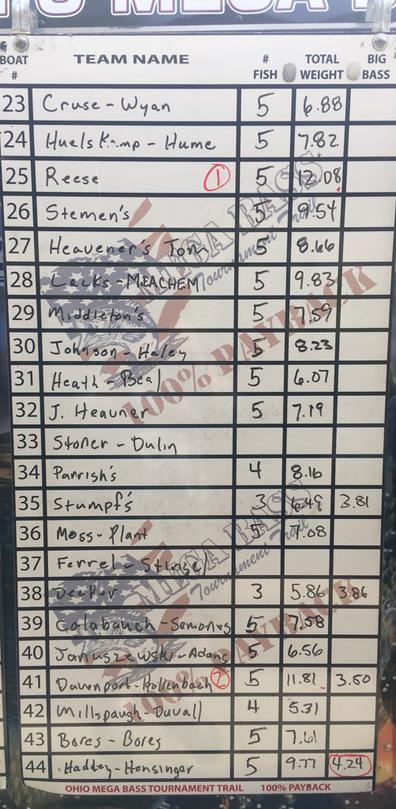 BOAT # TEAM NAME # FISH TOTAL WEIGHT BIG BASS
23 Cruse - Wyan 5 6.88
24 Huelskamp - Hume 5 7.82
25 Reese 1 5 12.08
26 Stemen's 5 9.54
27 Heavener's Tom 5 8.66
28 Lacks - MEACHEM 5 9.83
29 Middleton's 5 7.59
30 Johnson - Haley 5 8.23
31 Heath - Beal 5 6.07
32 J. Heavner 5 7.19
33 Stoner - Dulin
34 Parrish's 4 8.16
35 Stumpf's 3 6.49 3.81
36 Moss - Plant 5 7.68
37 Ferrel -
38 3 5.86 3.86
39 Golabauch - Semones 5 7.58
40 Januszewski - Adams 5 6.56
41 Davenport - Hollenbach 2 5 11.81 3.50
42 Millspaugh - Duvall 4 5.31
43 Bores - Bores 5 7.61
44 Haddey - Hensinger 5 9.77 4.24
MEGA BASS
Tournament Trail
100% PAYBACK
MEGA BASS
Tournament Trail
100% PAYBACK
OHIO MEGA BASS TOURNAMENT TRAIL 100% PAYBACK